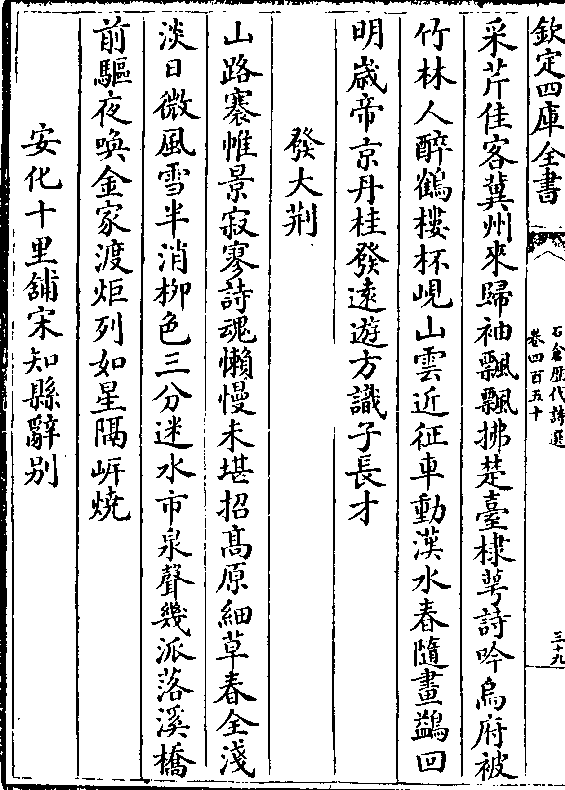 欽定四庫全書
石倉歴代詩選
卷四百五十
三十九
采芹佳客冀州來歸袖飄飄拂楚臺棣萼詩吟烏府被
竹林人醉鶴樓杯峴山雲近征車動漢水春隨畫鷁回
明歳帝京丹桂發遠遊方識子長才
發大荆
山路褰帷景寂寥詩魂懶慢未堪招髙原細草春全淺
淡日微風雪半消柳色三分迷水市泉聲幾派落溪橋
前驅夜喚金家渡炬列如星隔岍燒
安化十里舖宋知縣辭别